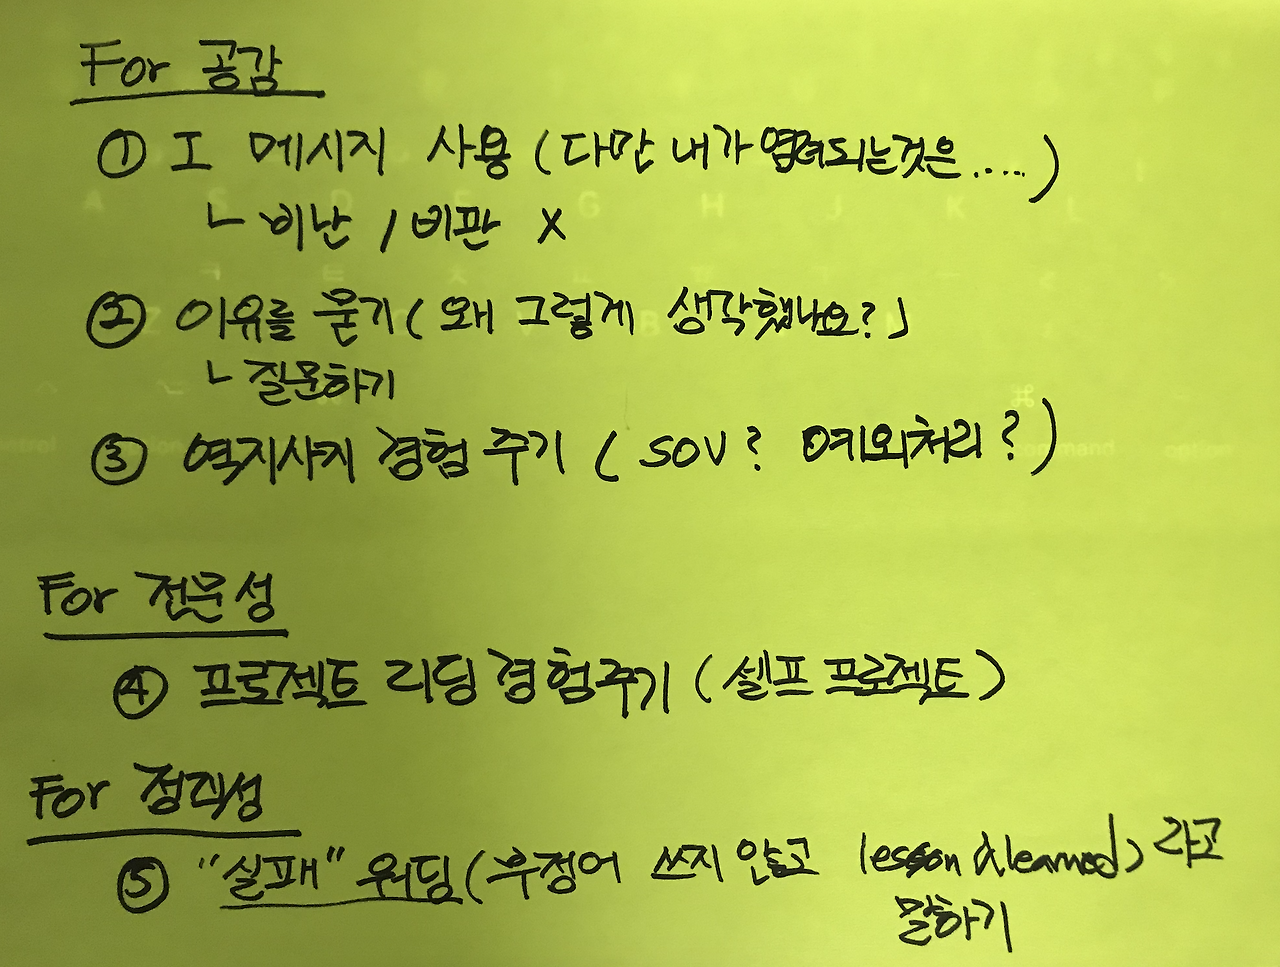 For 공감
① I 메시지 사용 (다만 내가 염려되는것은.....)
ㄴ 비난 / 비판 X
② 이유를 묻기 (왜 그렇게 생각했나요?)
ㄴ 질문하기
③ 역지사지 경험 주기 ( SOV? 예외처리?)
For 전문성
④ 프로젝트 리딩 경험주기 (셀프 프로젝트)
For 정직성
⑤ "실패" 워딩 (부정어 쓰지 않고 lesson & learned) 라고
말하기